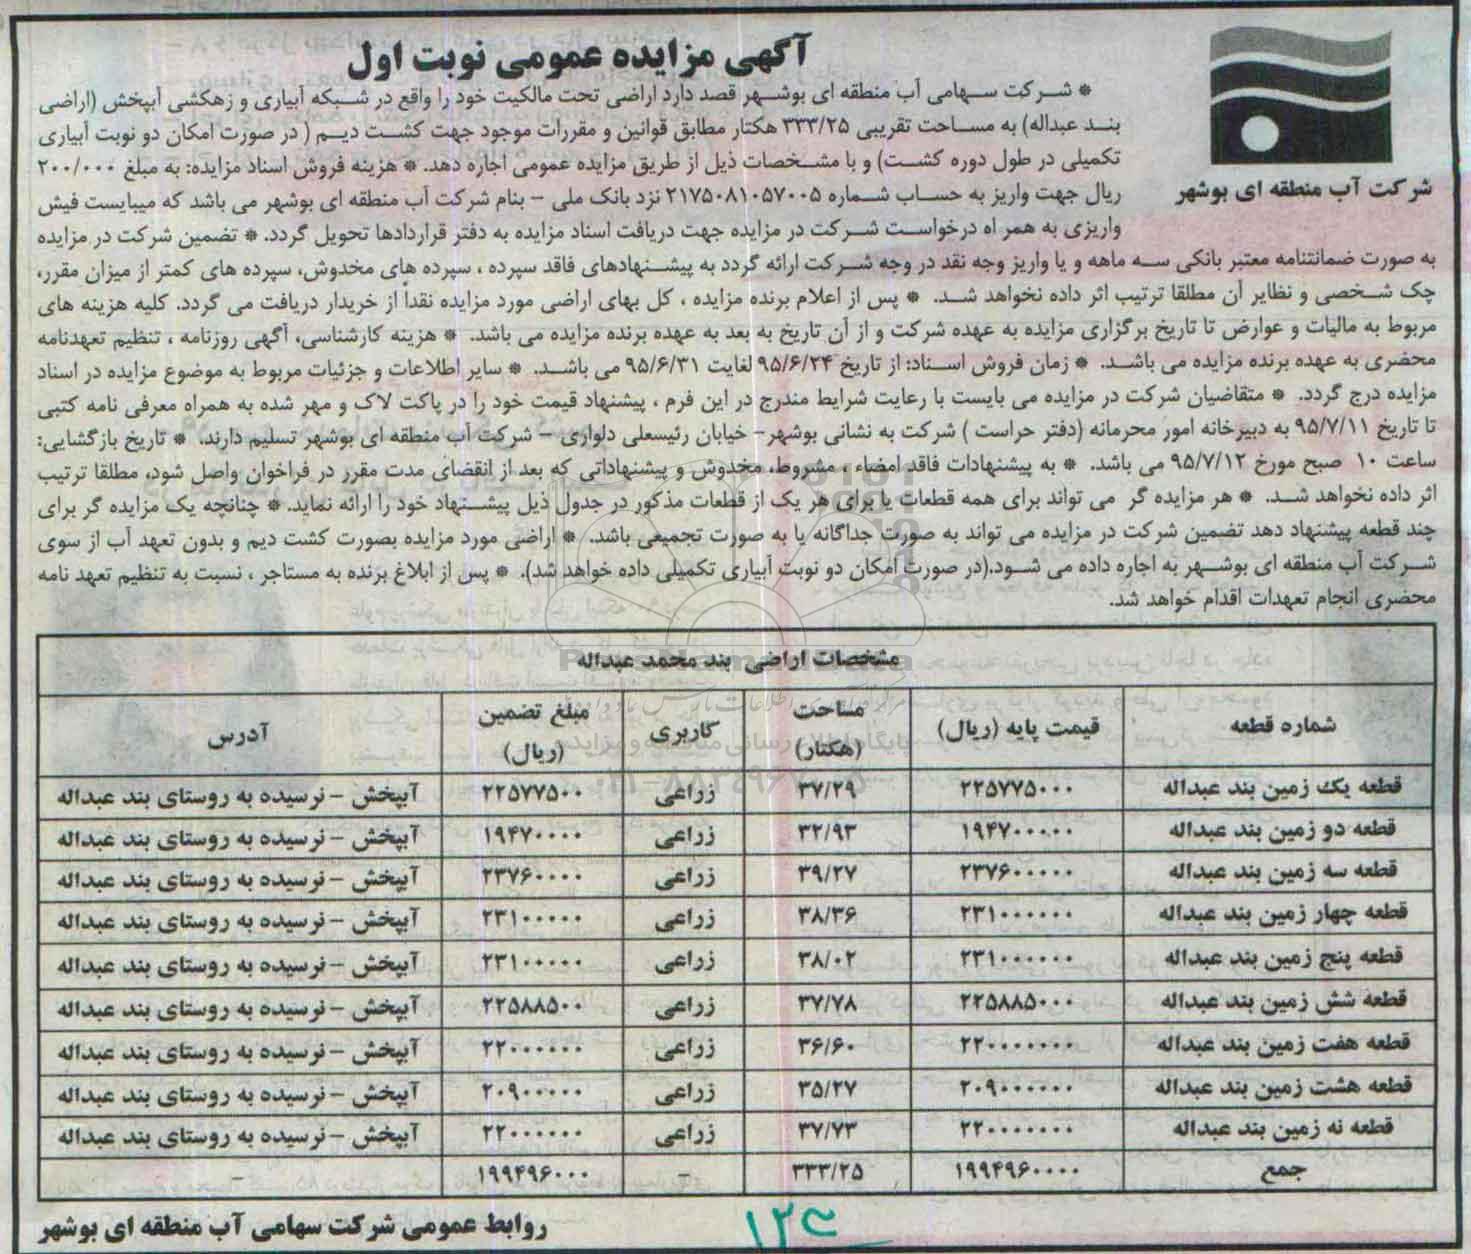 آگهی مزایده عمومی نوبت اول
شرکت آب منطقه ای بوشهر
* شرکت سهامی آب منطقه ای بوشهر قصد دارد اراضی تحت مالکیت خود را واقع در شبکه آبیاری و زهکشی آبپخش (اراضی
بند عبداله) به مساحت تقریبی ۳۳۳/۲۵ هکتار مطابق قوانین و مقررات موجود جهت کشت دیم ( در صورت امکان دو نوبت آبیاری
تکمیلی در طول دوره کشت) و با مشخصات ذیل از طریق مزایده عمومی اجاره دهد. * هزینه فروش اسناد مزایده: به مبلغ ۲۰۰/۰۰۰
ریال جهت واریز به حساب شماره ۲۱۷۵۰۸۱۰۵۷۰۰۵ نزد بانک ملی – بنام شرکت آب منطقه ای بوشهر می باشد که میبایست فیش
واریزی به همر اه درخواست شرکت در مزایده جهت دریافت اسناد مزایده به دفتر قراردادها تحویل گردد. * تضمین شرکت در مزایده
به صورت ضمانتنامه معتبر بانکی سه ماهه و یا واریز وجه نقد در وجه شرکت ارائه گردد به پیشنهادهای فاقد سپرده ، سپرده های مخدوش، سپرده های کمتر از میزان مقرر،
چک شخصی و نظایر آن مطلقا ترتیب اثر داده نخواهد شد. * پس از اعلام برنده مزایده ، کل بهای اراضی مورد مزایده نقداً از خریدار دریافت می گردد. کلیه هزینه های
مربوط به مالیات و عوارض تا تاریخ برگزاری مزایده به عهده شرکت و از آن تاریخ به بعد به عهده برنده مزایده می باشد. * هزینه کارشناسی، آگهی روزنامه ، تنظیم تعهدنامه
محضری به عهده برنده مزایده می باشد. * زمان فروش اسناد: از تاریخ ۹۵/۶/۲۴ لغایت ۹۵/۶/۳۱ می باشد. * سایر اطلاعات و جزئیات مربوط به موضوع مزایده در اسناد
مزایده درج گردد. * متقاضیان شرکت در مزایده می بایست با رعایت شرایط مندرج در این فرم ، پیشنهاد قیمت خود را در پاکت لاک و مهر شده به همراه معرفی نامه کتبی
تا تاریخ ۹۵/۷/۱۱ به دبیرخانه امور محرمانه (دفتر حراست ) شرکت به نشانی بوشهر– خیابان رئیسعلی دلواری – شرکت آب منطقه ای بوشهر تسلیم دارند. * تاریخ بازگشایی:
ساعت ۱۰ صبح مورخ ۹۵/۷/۱۲ می باشد. * به پیشنهادات فاقد امضاء ، مشروط، مخدوش و پیشنهاداتی که بعد از انقضای مدت مقرر در فراخوان واصل شود، مطلقا ترتیب
اثر داده نخواهد شد. * هر مزایده گر می تواند برای همه قطعات یا برای هر یک از قطعات مذکور در جدول ذیل پیشنهاد خود را ارائه نماید. * چنانچه یک مزایده گر برای
چند قطعه پیشنهاد دهد تضمین شرکت در مزایده می تواند به صورت جداگانه یا به صورت تجمیعی باشد. * اراضی مورد مزایده بصورت کشت دیم و بدون تعهد آب از سوی
شرکت آب منطقه ای بوشهر به اجاره داده می شود.(در صورت امکان دو نوبت آبیاری تکمیلی داده خواهد شد). * پس از ابلاغ برنده به مستاجر ، نسبت به تنظیم تعهد نامه
محضری انجام تعهدات اقدام خواهد شد.
مشخصات اراضی بند محمد عبداله
شماره قطعه قیمت پایه (ریال) مساحت (هکتار) کاربری مبلغ تضمین (ریال) آدرس
قطعه یک زمین بند عبداله ۲۲۵۷۷۵۰۰۰ ۳۷/۲۹ زراعی ۲۲۵۷۷۵۰۰ آبپخش – نرسیده به روستای بند عبداله
قطعه دو زمین بند عبداله ۱۹۴۷۰۰۰۰۰ ۳۲/۹۳ زراعی ۱۹۴۷۰۰۰۰ آبپخش – نرسیده به روستای بند عبداله
قطعه سه زمین بند عبداله ۲۳۷۶۰۰۰۰۰ ۳۹/۲۷ زراعی ۲۳۷۶۰۰۰۰ آبپخش – نرسیده به روستای بند عبداله
قطعه چهار زمین بند عبداله ۲۳۱۰۰۰۰۰۰ ۳۸/۳۶ زراعی ۲۳۱۰۰۰۰۰ آبپخش – نرسیده به روستای بند عبداله
قطعه پنج زمین بند عبداله ۲۳۱۰۰۰۰۰۰ ۳۸/۰۲ زراعی ۲۳۱۰۰۰۰۰ آبپخش – نرسیده به روستای بند عبداله
قطعه شش زمین بند عبداله ۲۲۵۸۸۵۰۰۰ ۳۷/۷۸ زراعی ۲۲۵۸۸۵۰۰ آبپخش – نرسیده به روستای بند عبداله
قطعه هفت زمین بند عبداله ۲۲۰۰۰۰۰۰۰ ۳۶/۶۰ زراعی ۲۲۰۰۰۰۰۰ آبپخش – نرسیده به روستای بند عبداله
قطعه هشت زمین بند عبداله ۲۰۹۰۰۰۰۰۰ ۳۵/۲۷ زراعی ۲۰۹۰۰۰۰۰ آبپخش – نرسیده به روستای بند عبداله
قطعه نه زمین بند عبداله ۲۲۰۰۰۰۰۰۰ ۳۷/۷۳ زراعی ۲۲۰۰۰۰۰۰ آبپخش – نرسیده به روستای بند عبداله
جمع ۱۹۹۴۹۶۰۰۰۰ ۳۳۳/۲۵ – ۱۹۹۴۹۶۰۰۰ –
روابط عمومی شرکت سهامی آب منطقه ای بوشهر